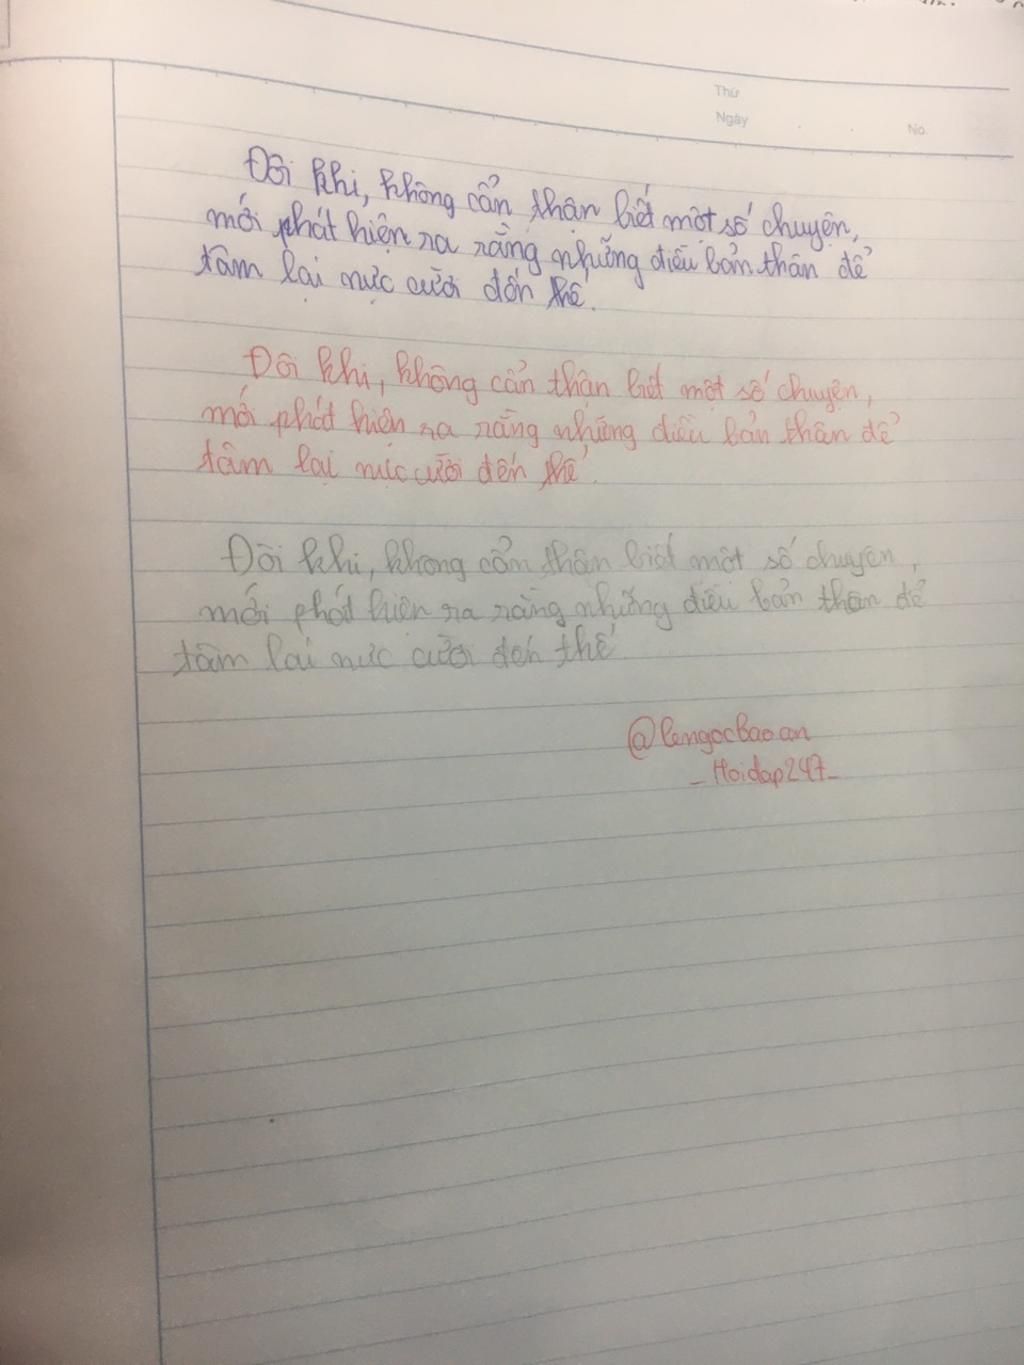 Thứ
Ngày
No.
Đôi khi, không cẩn thận biết một số chuyện,
mới phát hiện ra rằng những điều bản thân để
tâm lại nực cười đến thế.
Đôi khi, không cẩn thận biết một số chuyện,
mới phát hiện ra rằng những điều bản thân để
tâm lại nực cười đến thế.
Đôi khi, không cẩn thận biết một số chuyện,
mới phát hiện ra rằng những điều bản thân để
tâm lại nực cười đến thế
@lengocbaoan
_Hoidap247_